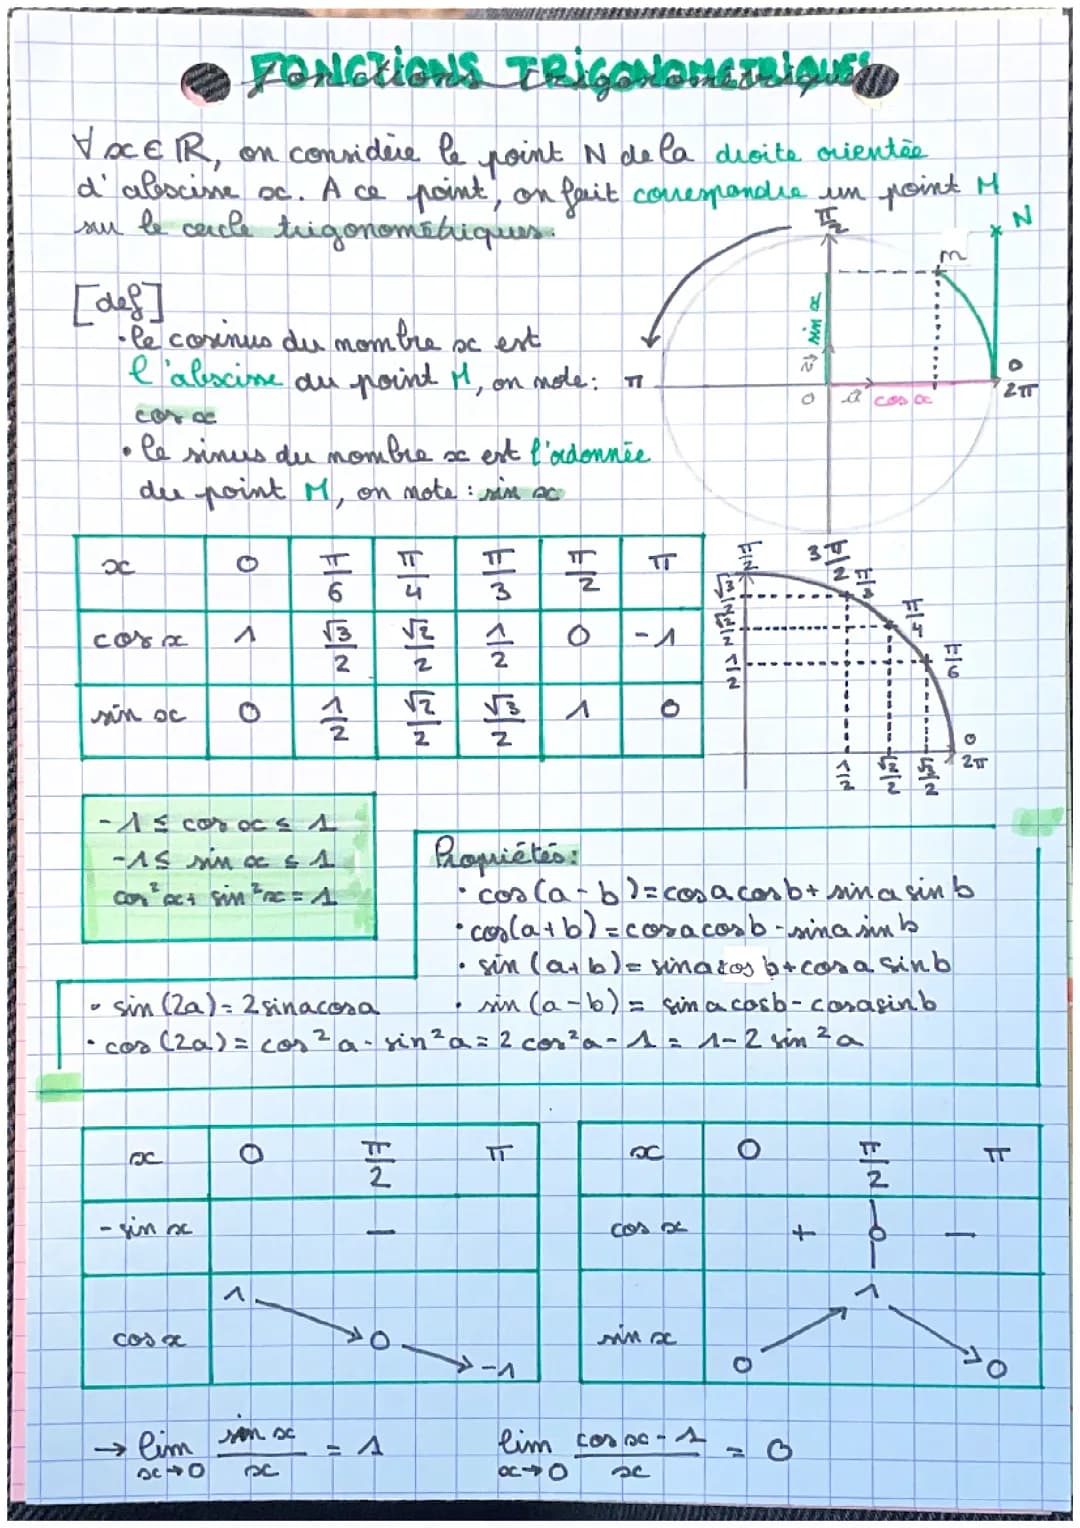 FONCTIONS TRIGONOMÉTRIQUES
∀ x ∈ ℝ, on considère le point N de la droite orientée
d'abscisse x. A ce point, on fait correspondre un point M
sur le cercle trigonométriques.
[def]
• le cosinus du nombre x est
l'abscisse du point M, on note :
cos x
• le sinus du nombre x est l'ordonnée
du point M, on note : sin x
π/2
N
m
sin x
π
v
0
2π
O
u
cos x
3π/2
x 0 π/6 π/4 π/3 π/2 π
cos x 1 √3/2 √2/2 1/2 0 -1
sin x 0 1/2 √2/2 √3/2 1 0
π/2
π/3
√3/2
π/4
√2/2
π/6
1/2
0
2π
1/2 √2/2 √3/2
-1 ≤ cos x ≤ 1
-1 ≤ sin x ≤ 1
cos²x + sin²x = 1
Propriétés :
• cos(a - b) = cos a cos b + sin a sin b
• cos(a + b) = cos a cos b - sin a sin b
• sin (a+b) = sin a cos b + cos a sin b
• sin (a-b) = sin a cos b - cos a sin b
• sin (2a) = 2 sin a cos a
• cos (2a) = cos² a - sin² a = 2 cos² a - 1 = 1 - 2 sin² a
x 0 π/2 π
- sin x −
cos x 1 0 -1
x 0 π/2 π
cos x + 0 −
sin x 0 1 0
→ lim x→0 sin x / x = 1
lim x→0 cos x - 1 / x = 0